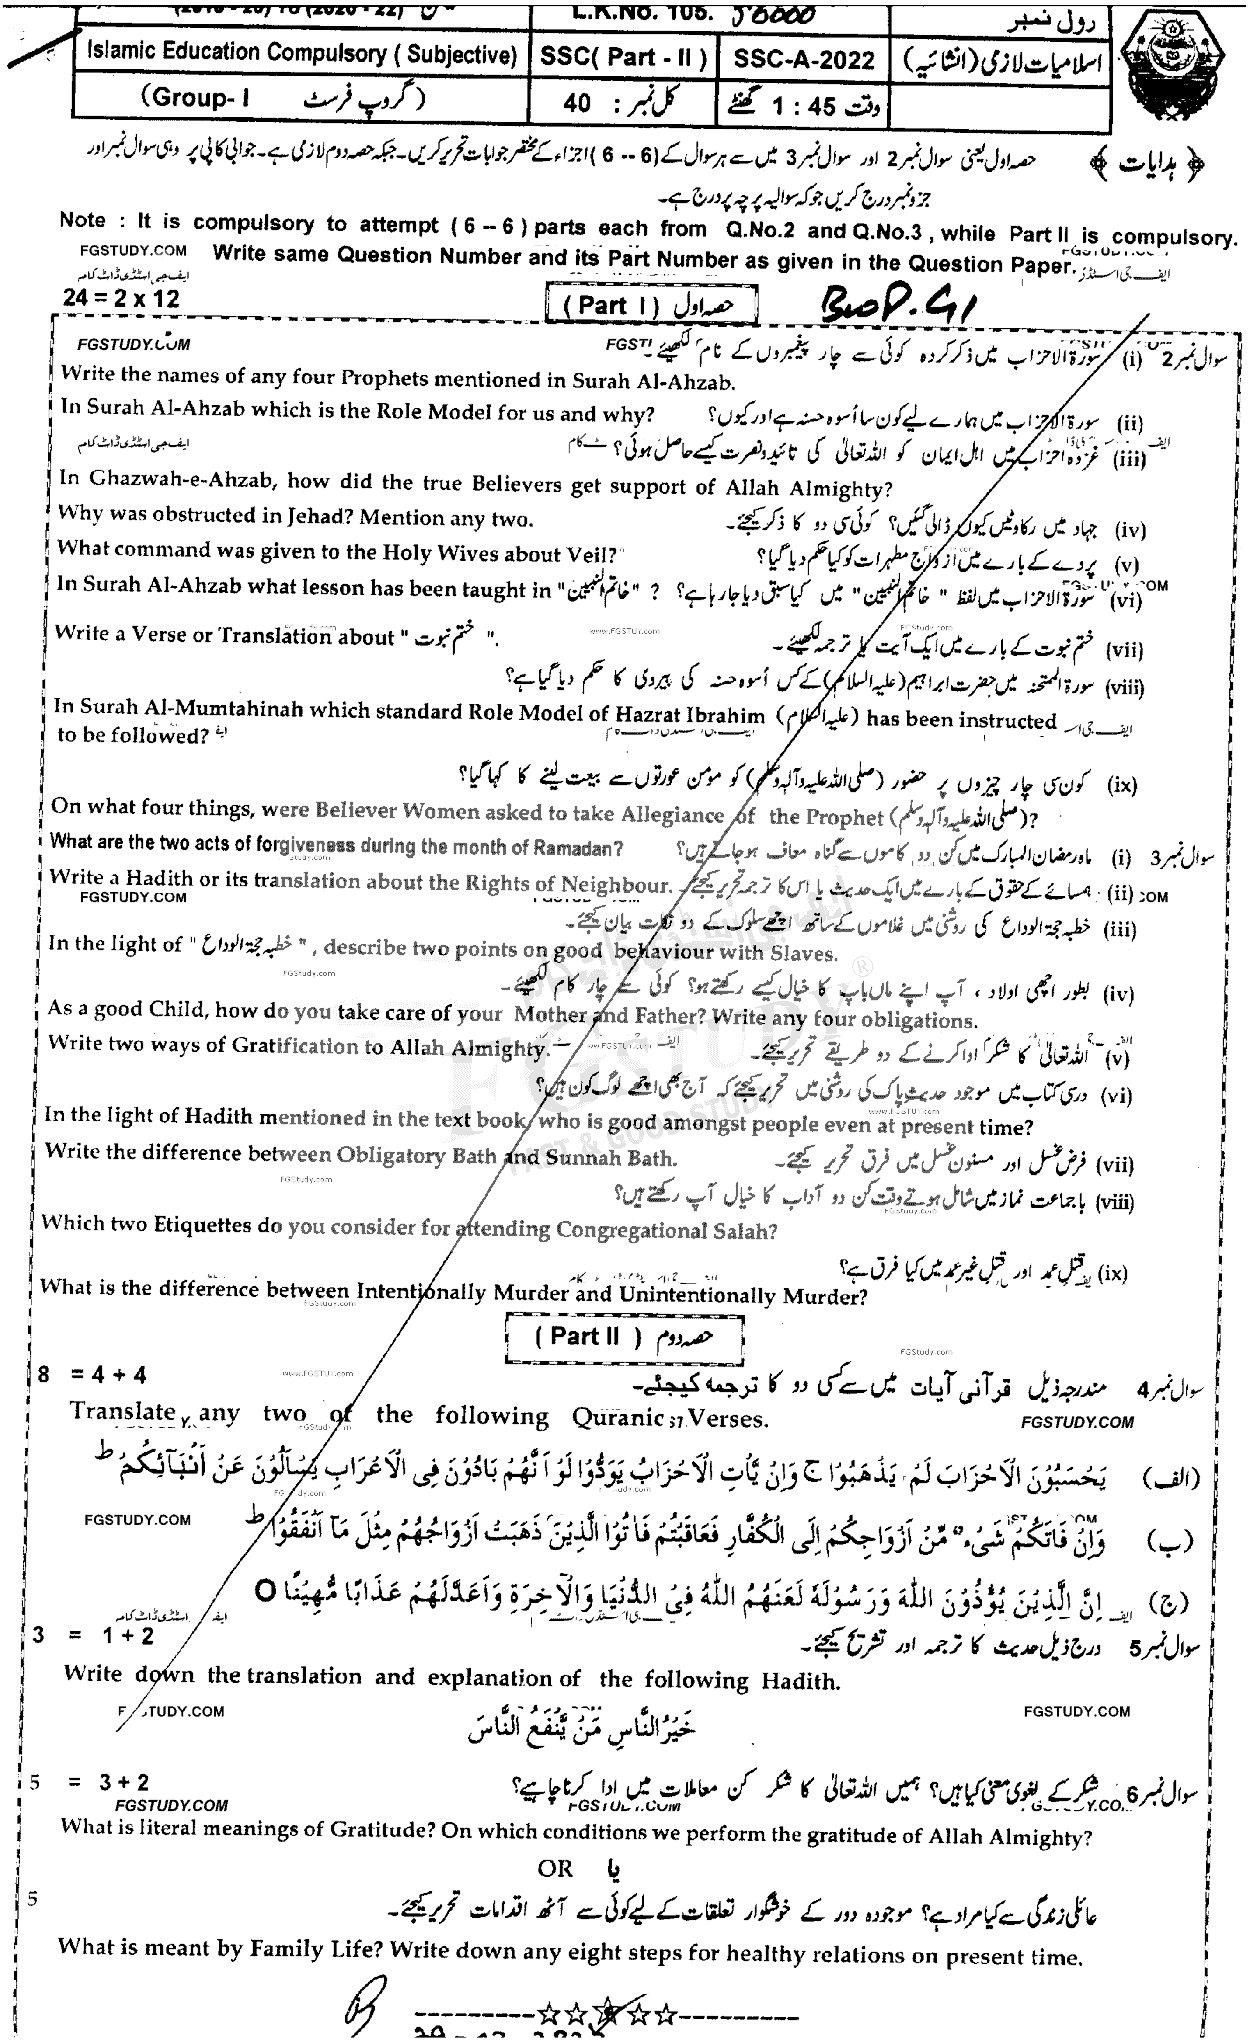 (2018 - 20) to (2020 - 22) L.K.No. 105. 50000 رول نمبر
Islamic Education Compulsory ( Subjective) SSC( Part - II ) SSC-A-2022 اسلامیات لازمی (انشائیہ)
(Group- I گروپ فرسٹ) کل نمبر : 40 وقت 1 : 45 گھنٹے
﴿ ہدایات ﴾ حصہ اول یعنی سوال نمبر 2 اور سوال نمبر 3 میں سے ہر سوال کے (6 -- 6) اجزاء کے مختصر جوابات تحریر کریں۔ جبکہ حصہ دوم لازمی ہے۔ جوابی کاپی پر وہی سوال نمبر اور
جزو نمبر درج کریں جو کہ سوالیہ پرچہ پر درج ہے۔
Note : It is compulsory to attempt ( 6 -- 6 ) parts each from Q.No.2 and Q.No.3 , while Part II is compulsory.
FGSTUDY.COM Write same Question Number and its Part Number as given in the Question Paper.
ایف جی اسٹڈی ڈاٹ کام
24 = 2 x 12 (Part I) حصہ اول
FGSTUDY.COM سوال نمبر 2 (i) سورۃ الاحزاب میں ذکر کردہ کوئی سے چار پیغمبروں کے نام لکھیئے۔
Write the names of any four Prophets mentioned in Surah Al-Ahzab.
In Surah Al-Ahzab which is the Role Model for us and why? (ii) سورۃ الاحزاب میں ہمارے لیے کون سا اُسوہ حسنہ ہے اور کیوں؟
ایف جی اسٹڈی ڈاٹ کام (iii) غزوہ احزاب میں اہل ایمان کو اللہ تعالیٰ کی تائید و نصرت کیسے حاصل ہوئی؟
In Ghazwah-e-Ahzab, how did the true Believers get support of Allah Almighty?
Why was obstructed in Jehad? Mention any two. (iv) جہاد میں رکاوٹیں کیوں ڈالی گئیں؟ کوئی سی دو کا ذکر کیجئے۔
What command was given to the Holy Wives about Veil? (v) پردے کے بارے میں ازواج مطہرات کو کیا حکم دیا گیا؟
In Surah Al-Ahzab what lesson has been taught in "خاتم النبیین" ? (vi) سورۃ الاحزاب میں لفظ "خاتم النبیین" میں کیا سبق دیا جا رہا ہے؟
Write a Verse or Translation about " ختم نبوت ". (vii) ختم نبوت کے بارے میں ایک آیت یا ترجمہ لکھیئے۔
(viii) سورۃ الممتحنہ میں حضرت ابراہیم (علیہ السلام) کے کس اُسوہ حسنہ کی پیروی کا حکم دیا گیا ہے؟
In Surah Al-Mumtahinah which standard Role Model of Hazrat Ibrahim (علیہ السلام) has been instructed
to be followed?
(ix) کون سی چار چیزوں پر حضور (صلی اللہ علیہ وآلہ وسلم) کو مومن عورتوں سے بیعت لینے کا کہا گیا؟
On what four things, were Believer Women asked to take Allegiance of the Prophet (صلی اللہ علیہ وآلہ وسلم)?
What are the two acts of forgiveness during the month of Ramadan? سوال نمبر 3 (i) ماہ رمضان المبارک میں کن دو کاموں سے گناہ معاف ہو جاتے ہیں؟
Write a Hadith or its translation about the Rights of Neighbour. (ii) ہمسائے کے حقوق کے بارے میں ایک حدیث یا اس کا ترجمہ تحریر کیجئے۔
FGSTUDY.COM
(iii) خطبہ حجۃ الوداع کی روشنی میں غلاموں کے ساتھ اچھے سلوک کے دو نکات بیان کیجئے۔
In the light of " خطبہ حجۃ الوداع ", describe two points on good behaviour with Slaves.
FGStudy.com (iv) بطور اچھی اولاد ، آپ اپنے ماں باپ کا خیال کیسے رکھتے ہو؟ کوئی سے چار کام لکھیئے۔
As a good Child, how do you take care of your Mother and Father? Write any four obligations.
Write two ways of Gratification to Allah Almighty. (v) اللہ تعالیٰ کا شکر ادا کرنے کے دو طریقے تحریر کیجئے۔
(vi) درسی کتاب میں موجود حدیث پاک کی روشنی میں تحریر کیجئے کہ آج بھی اچھے لوگ کون ہیں؟
FGSTUDY
FAST & GOOD STUDY
In the light of Hadith mentioned in the text book, who is good amongst people even at present time?
Write the difference between Obligatory Bath and Sunnah Bath. (vii) فرض غسل اور مسنون غسل میں فرق تحریر کیجئے۔
FGStudy.com (viii) باجماعت نماز میں شامل ہوتے وقت کن دو آداب کا خیال آپ رکھتے ہیں؟
Which two Etiquettes do you consider for attending Congregational Salah?
(ix) قتلِ عمد اور قتلِ غیر عمد میں کیا فرق ہے؟
What is the difference between Intentionally Murder and Unintentionally Murder?
(Part II) حصہ دوم
8 = 4 + 4 www.FGSTUY.com FGStudy.com سوال نمبر 4 مندرجہ ذیل قرآنی آیات میں سے کسی دو کا ترجمہ کیجئے۔
Translate any two of the following Quranic Verses. FGSTUDY.COM
(الف) يَحْسَبُوْنَ الْاَحْزَابَ لَمْ يَذْهَبُوْا ج وَاِنْ يَّاْتِ الْاَحْزَابُ يَوَدُّوْا لَوْ اَنَّهُمْ بَادُوْنَ فِى الْاَعْرَابِ يَسْاَلُوْنَ عَنْ اَنْبَآئِكُمْ ط
FGSTUDY.COM (ب) وَاِنْ فَاتَكُمْ شَىْءٌ مِّنْ اَزْوَاجِكُمْ اِلَى الْكُفَّارِ فَعَاقَبْتُمْ فَاٰتُوا الَّذِيْنَ ذَهَبَتْ اَزْوَاجُهُمْ مِثْلَ مَآ اَنْفَقُوْا ط
(ج) اِنَّ الَّذِيْنَ يُؤْذُوْنَ اللّٰهَ وَرَسُوْلَهٗ لَعَنَهُمُ اللّٰهُ فِى الدُّنْيَا وَالْاٰخِرَةِ وَاَعَدَّلَهُمْ عَذَابًا مُّهِيْنًا O
3 = 1 + 2 سوال نمبر 5 درج ذیل حدیث کا ترجمہ اور تشریح کیجئے۔
Write down the translation and explanation of the following Hadith.
FGSTUDY.COM خَيْرُ النَّاسِ مَنْ يَّنْفَعُ النَّاسَ FGSTUDY.COM
5 = 3 + 2 سوال نمبر 6 شکر کے لغوی معنی کیا ہیں؟ ہمیں اللہ تعالیٰ کا شکر کن معاملات میں ادا کرنا چاہیے؟
FGSTUDY.COM FGSTUDY.COM
What is literal meanings of Gratitude? On which conditions we perform the gratitude of Allah Almighty?
OR یا
5 عائلی زندگی سے کیا مراد ہے؟ موجودہ دور کے خوشگوار تعلقات کے لیے کوئی سے آٹھ اقدامات تحریر کیجئے۔
What is meant by Family Life? Write down any eight steps for healthy relations on present time.
---------☆☆☆☆☆---------